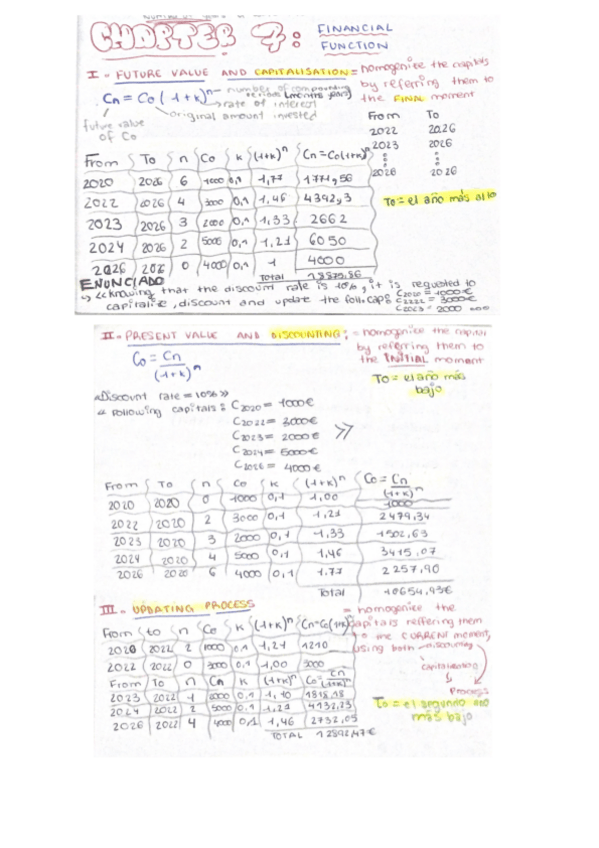 CHAPTER 7: FINANCIAL
FUNCTION
I - FUTURE VALUE AND CAPITALISATION = homogenize the capitals
by referring them to
the FINAL moment
Cn = Co (1+k)^n number of compounding
periods (months, years)
rate of interest
original amount invested
future value
of Co
From To
2022 2026
2023 2026
2026 2026
From To n Co K (1+k)^n Cn=Co(1+k)^n
2020 2026 6 1000 0,1 1,77 1771,56
2022 2026 4 3000 0,1 1,46 4392,3
2023 2026 3 2000 0,1 1,33 2662
2024 2026 2 5000 0,1 1,21 6050
2026 2026 0 4000 0,1 1 4000
Total 18875,86
To = el año más alto
ENUNCIADO
Knowing that the discount rate is 10%, it is requested to
capitalize, discount and update the foll. cap: C2020 = 1000€
C2022 = 3000€
C2023 = 2000 ...
II - PRESENT VALUE AND DISCOUNTING: = homogenize the capital
by referring them to
the INITIAL moment
Co = Cn
(1+k)^n
To = el año más
bajo
«Discount rate = 10%»
« following capitals: C2020 = 1000€
C2022 = 3000€
C2023 = 2000€ »
C2024 = 5000€
C2026 = 4000€
From To n Co K (1+k)^n Co = Cn
(1+k)^n
2020 2020 0 1000 0,1 1,00 1000
2022 2020 2 3000 0,1 1,21 2479,34
2023 2020 3 2000 0,1 1,33 1502,63
2024 2020 4 5000 0,1 1,46 3415,07
2026 2020 6 4000 0,1 1.77 2257,90
Total 10654,93€
III - UPDATING PROCESS = homogenize the
capitals reffering them
to the CURRENT moment,
using both discounting
capitalization
Process
From to n Co K (1+k)^n Cn=Co(1+k)^n
2020 2022 2 1000 0,1 1,21 1210
2022 2022 0 3000 0,1 1,00 3000
From To n Cn K (1+k)^n Co = Cn
(1+k)^n
2023 2022 1 2000 0,1 1,10 1818,18
2024 2022 2 5000 0,1 1,21 4132,23
2026 2022 4 4000 0,1 1,46 2732,05
TOTAL 12892,47€
To = el segundo año
más bajo